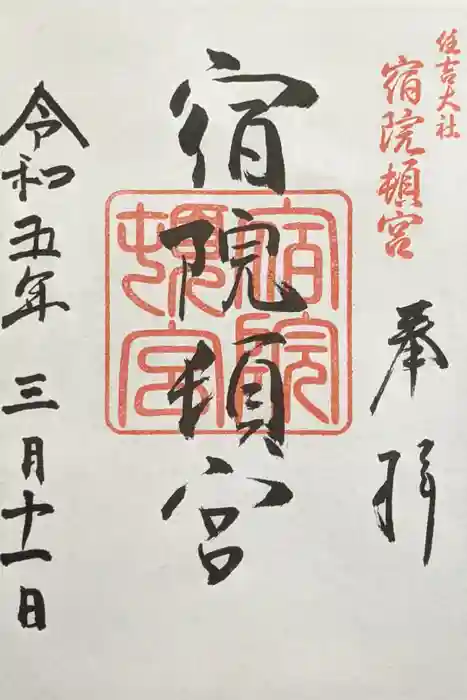 住吉大社
宿院頓宮
奉拝
宿院頓宮
宿院
頓宮
令和五年三月十一日